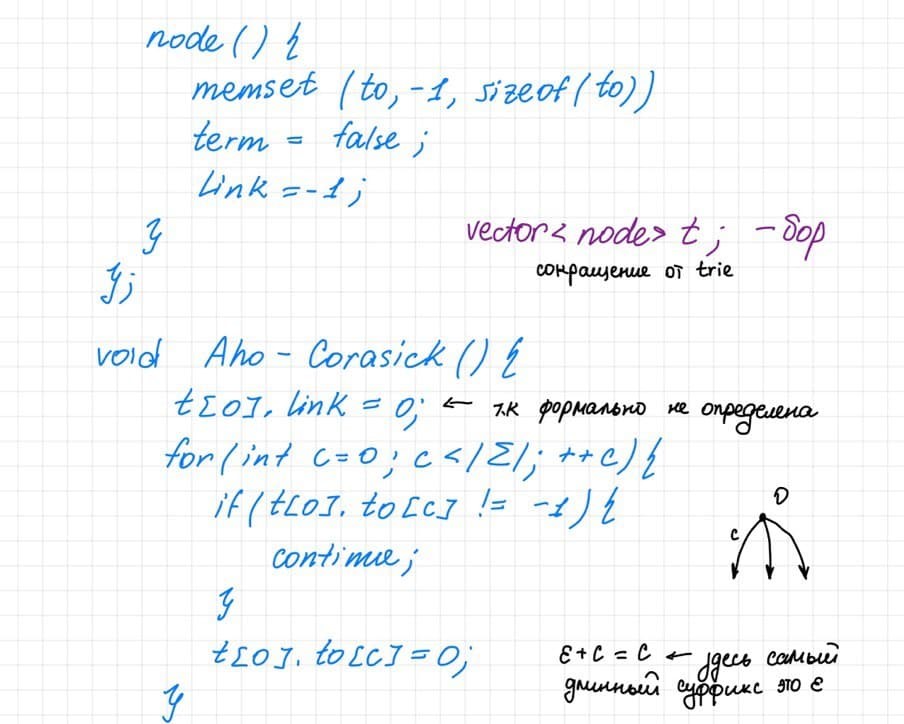 node () {
memset (to, -1, sizeof(to))
term = false ;
link = -1 ;
}
vector< node> t ; - бор
сокращение от trie
};
void Aho - Corasick () {
t[0]. link = 0; ← т.к формально не определена
for( int c=0 ; c <|Σ|; ++c) {
if (t[0]. to[c] != -1) {
0
c
continue ;
}
t[0]. to[c] = 0;
ε + c = c ← здесь самый
длинный суффикс это ε
}